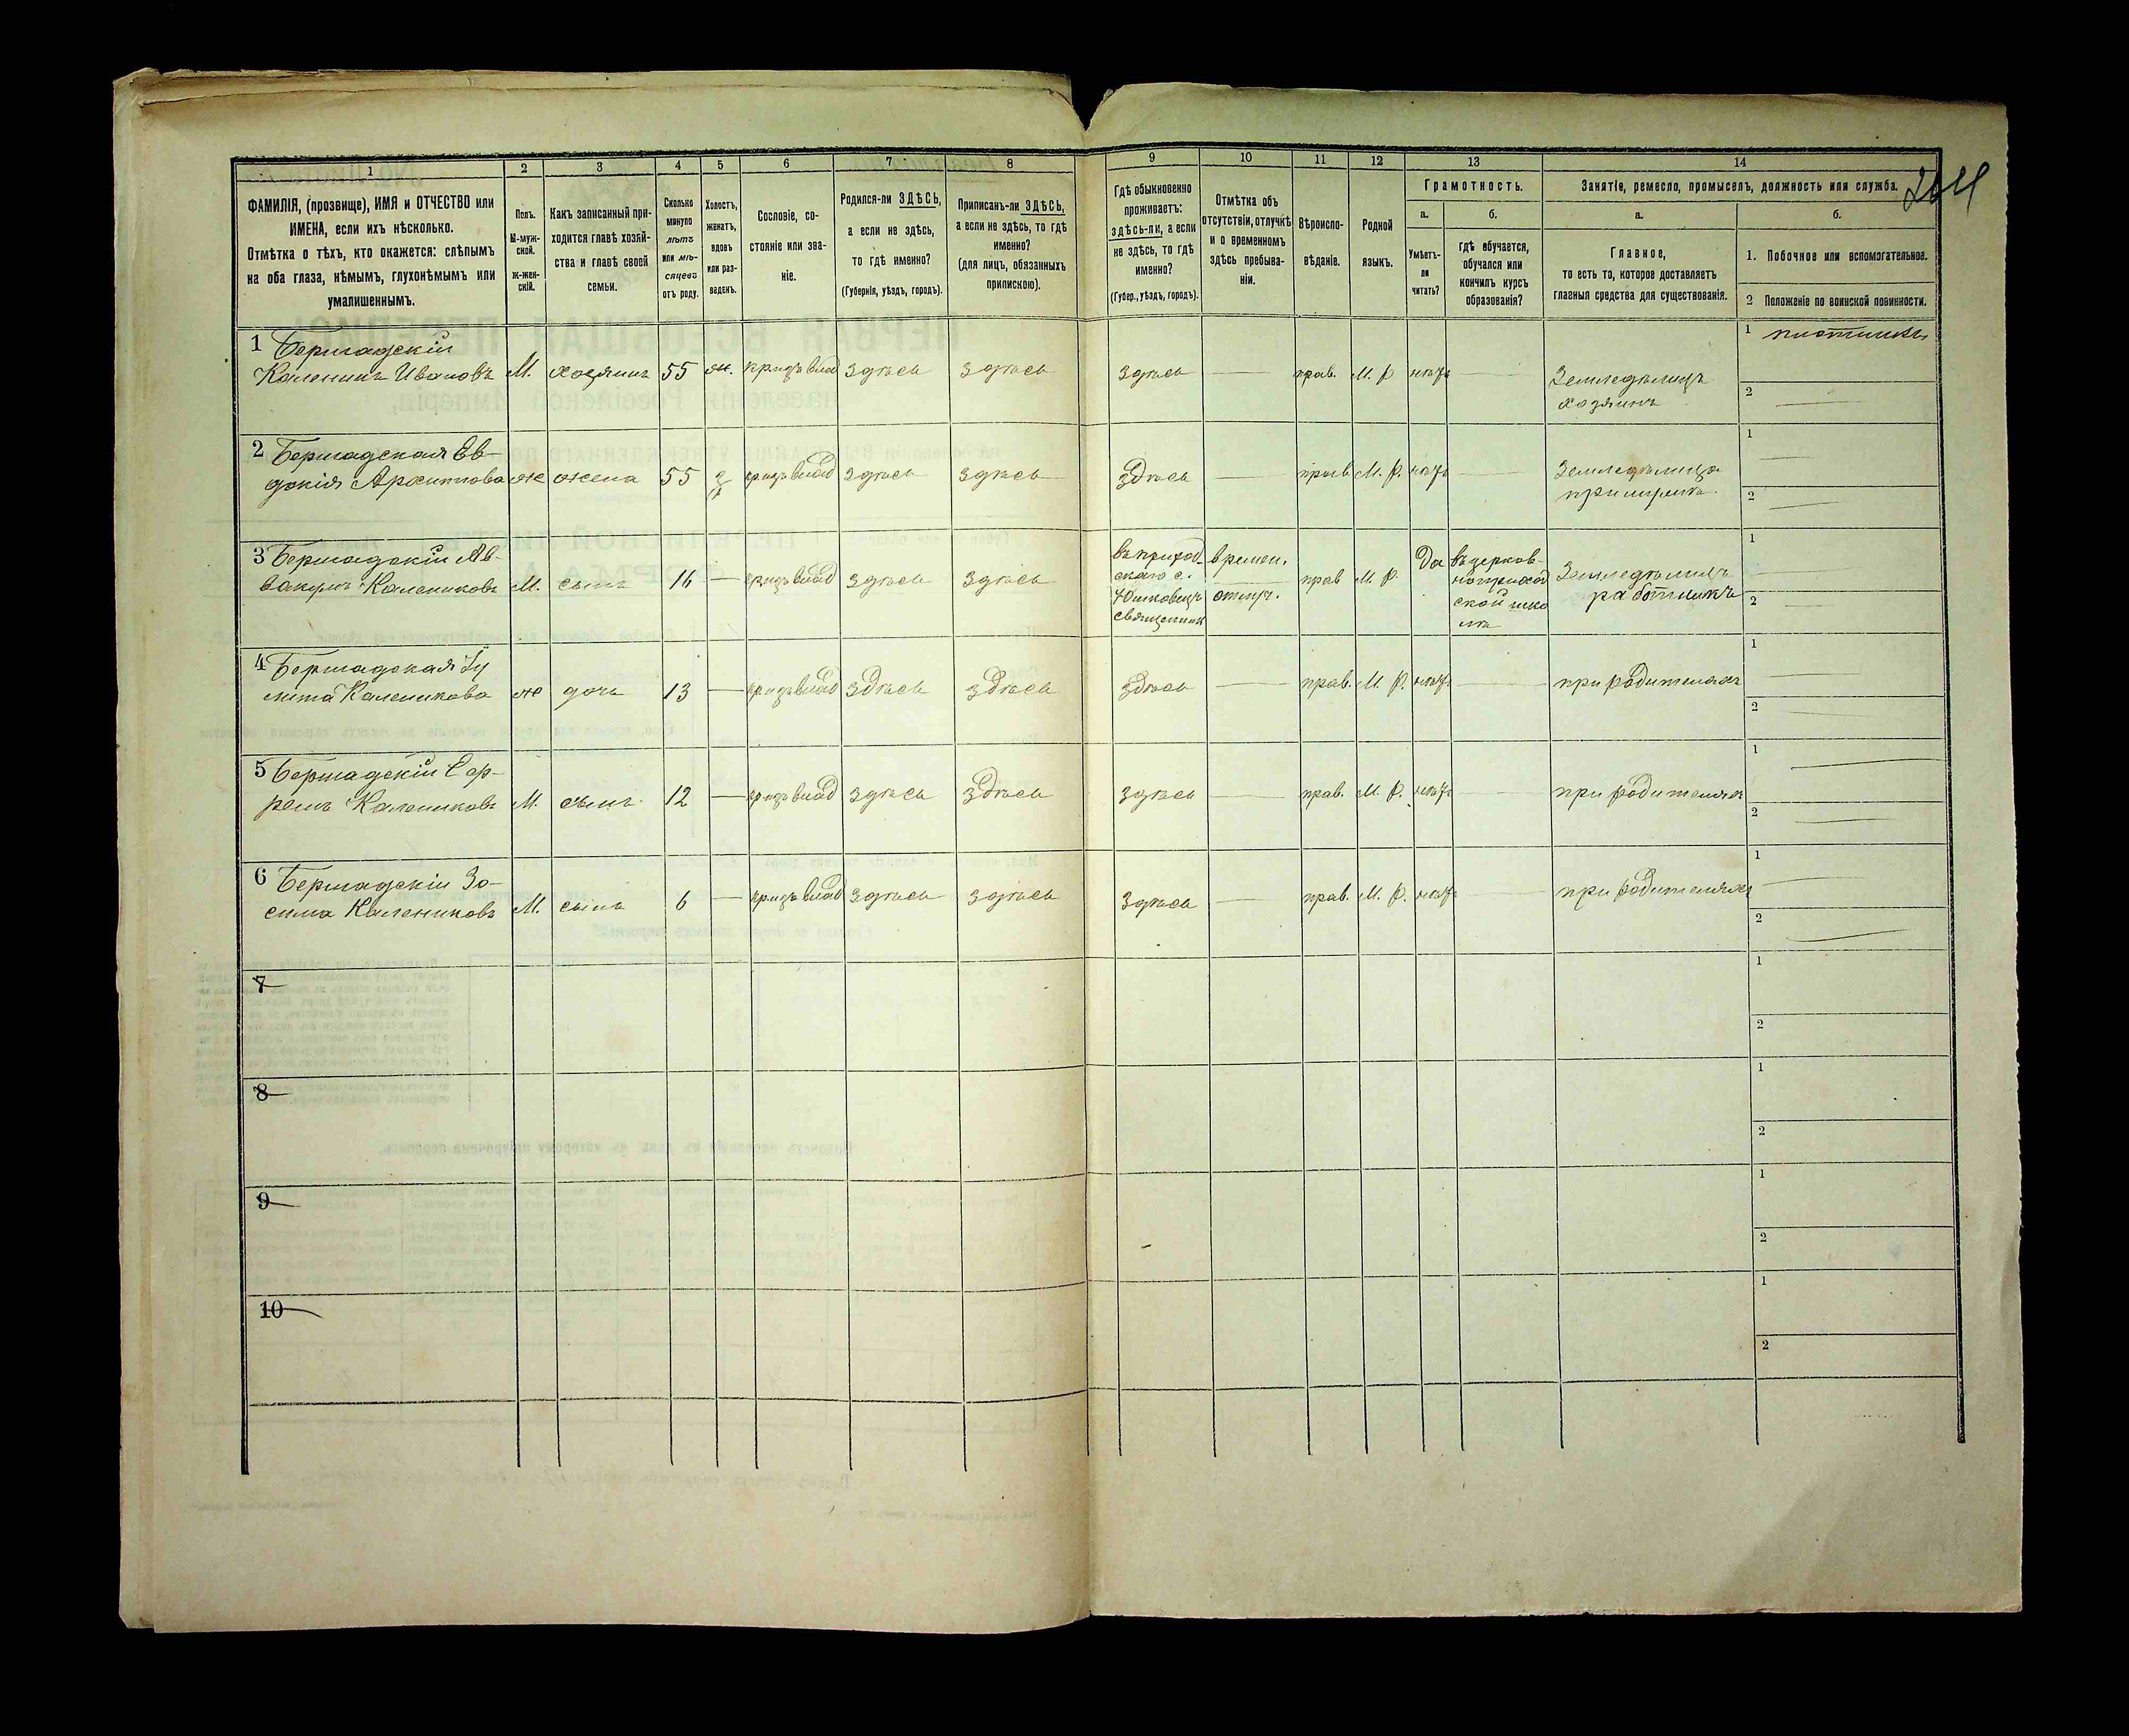 1 2 3 4 5 6 7 8 9 10 11 12 13 14
ФАМИЛІЯ, (прозвище), ИМЯ и ОТЧЕСТВО или
ИМЕНА, если ихъ нѣсколько.
Отмѣтка о тѣхъ, кто окажется: слѣпымъ
на оба глаза, нѣмымъ, глухонѣмымъ или
умалишеннымъ.
Полъ.
М-муж-
ской.
Ж-жен-
скій.
Какъ записанный при-
ходится главѣ хозяй-
ства и главѣ своей
семьи.
Сколько
минуло
лѣтъ
или мѣ-
сяцевъ
отъ роду.
Холостъ,
женатъ,
вдовъ
или раз-
веденъ.
Сословіе, со-
стояніе или зва-
ніе.
Родился-ли ЗДѢСЬ,
а если не здѣсь,
то гдѣ именно?
(Губернія, уѣздъ, городъ).
Приписанъ-ли ЗДѢСЬ,
а если не здѣсь, то гдѣ
именно?
(для лицъ, обязанныхъ
припискою).
Гдѣ обыкновенно
проживаетъ:
здѣсь-ли, а если
не здѣсь, то гдѣ
именно?
(Губер., уѣздъ, городъ).
Отмѣтка объ
отсутствіи, отлучкѣ
и о временномъ
здѣсь пребыва-
ніи.
Вѣроиспо-
вѣданіе.
Родной
языкъ.
Грамотность.
а.
Умѣетъ-
ли
читать?
б.
гдѣ обучается,
обучался или
кончилъ курсъ
образованія?
Занятіе, ремесло, промыселъ, должность или служба.
а.
Главное,
то есть то, которое доставляетъ
главныя средства для существованія.
б.
1. Побочное или вспомогательное.
2 Положеніе по воинской повинности.
264
1 Бершадскій
Каленикъ Ивановъ М. хозяинъ 55 ж. здѣсь здѣсь здѣсь прав. М. р нѣтъ
Земледѣлецъ
хозяинъ
1 плотникъ
2
2 Бершадская Ев-
докія Архипова ж жена 55 з здѣсь здѣсь здѣсь прав М. р. нѣтъ
1
2
3 Бершадскій Ав-
вакумъ Калениковъ М. сынъ 16 здѣсь здѣсь
въ приход
скаго с.
священник
времен.
отлуч.
прав М р.
Да
въ церков-
ноприход
ской шко
лѣ
Земледѣлецъ
работникъ
1
2
4 Бершадская Іу
лита Каленикова ж дочь 13 здѣсь здѣсь здѣсь прав. М. р. нѣтъ при родителяхъ
1
2
5 Бершадскій
Калениковъ М. сынъ 12 здѣсь здѣсь здѣсь прав. М. р. нѣтъ при родителях
1
2
6 Бершадскій Зо-
сима Калениковъ М. сынъ 6 здѣсь здѣсь здѣсь прав. М. р. нѣтъ при родителяхъ
1
2
7
1
2
8
1
2
9
1
2
10
1
2